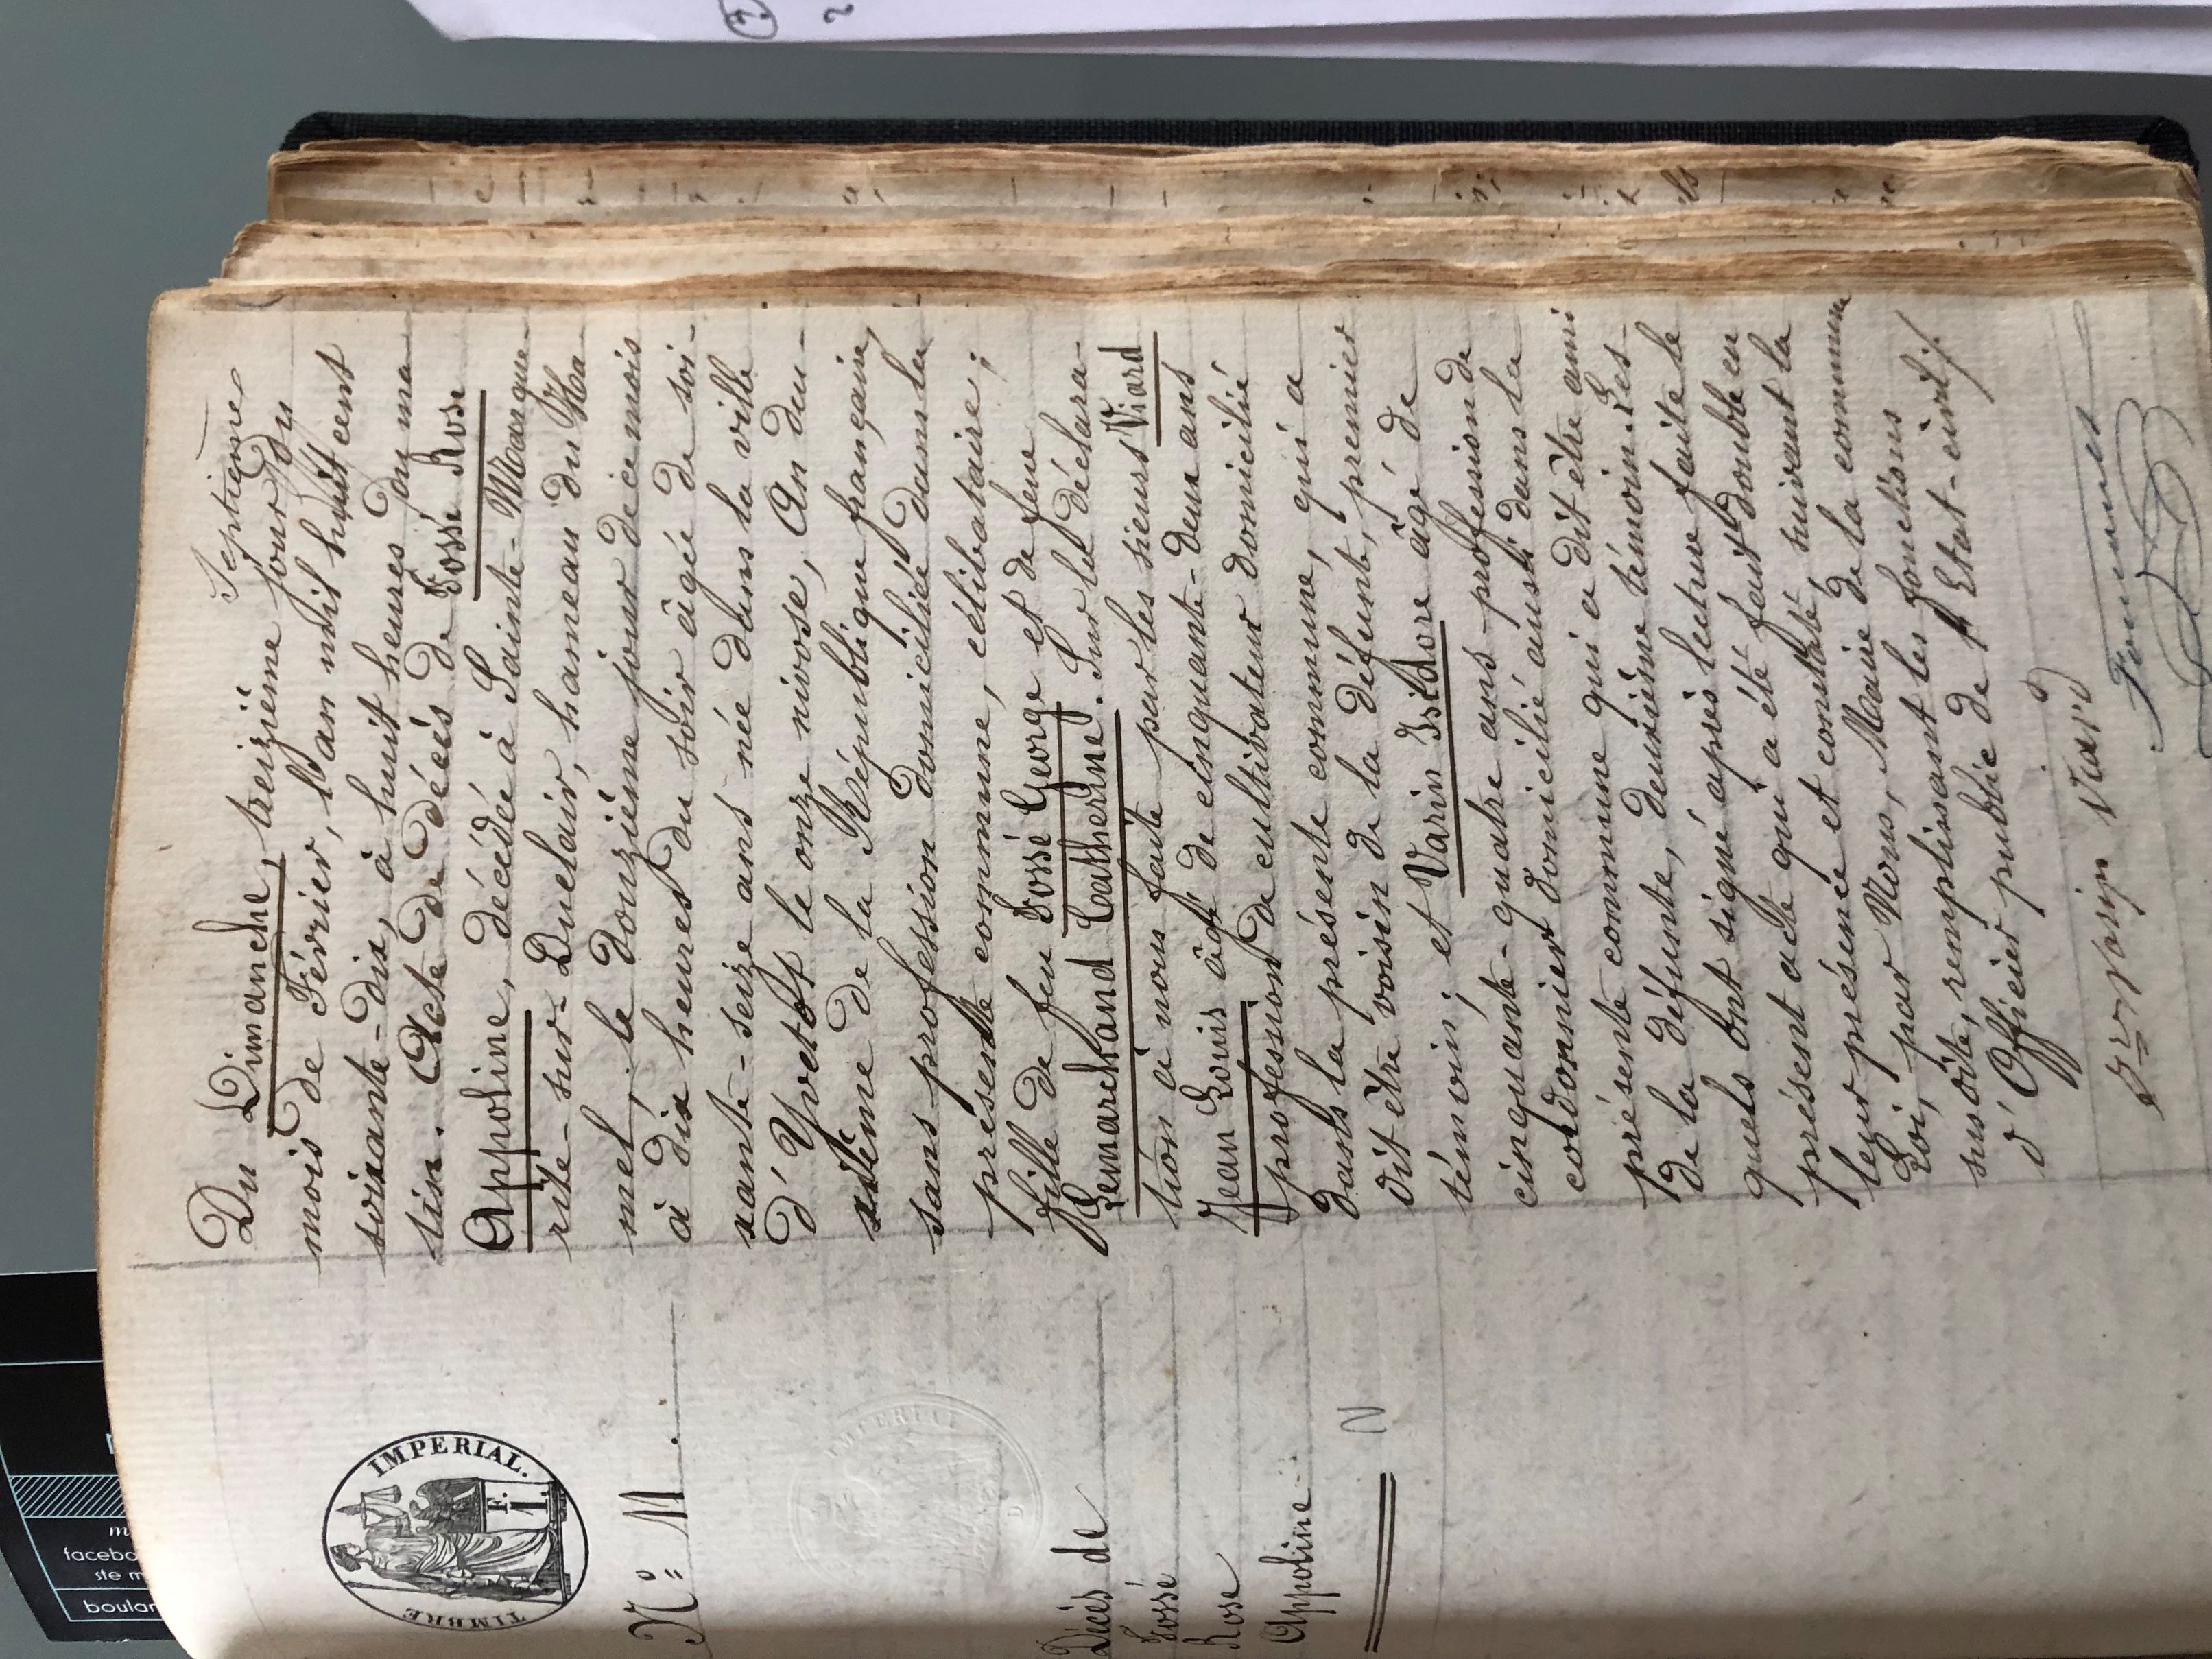 Septième
Du Dimanche, treizième jour du
mois de Février, l'an mil huit cent
soixante-dix, à huit heures du ma-
tin. Acte de décès de Fossé Rose
Appoline, décédée à Sainte-Margue-
rite-sur-Duclair, hameau du Ha-
mel, le douzième jour de ce mois
à dix heures du soir âgée de soi-
xante-seize ans née dans la ville
d'Yvetot le onze nivose, An deu-
xième de la République française,
sans profession domiciliée dans la
présente commune, célibataire;
fille de feu Fossé George et de feue
Lemarchand Catherine. Sur la déclara-
tion à nous faite par les sieurs Viard
Jean Louis âgé de cinquante-deux ans
profession de cultivateur domicilié
dans la présente commune, qui a
dit être voisin de la défunte, premier
témoin; et Varin Isidore âgé de
cinquante-quatre ans profession de
cordonnier domicilié aussi dans la
présente commune qui a dit être ami
de la défunte, deuxième témoin. Les-
quels ont signé après lecture faite le
présent acte qui a été fait double en
leur présence et constaté suivant la
Loi, par Nous, Maire de la commune
susdite, remplissant les fonctions
d'Officier public de l'Etat-civil./.
Viard
N° 11.
Décès de
Fossé
Rose
Appoline
N
TIMBRE IMPERIAL.
F.
1.
facebo
ste m
boulan